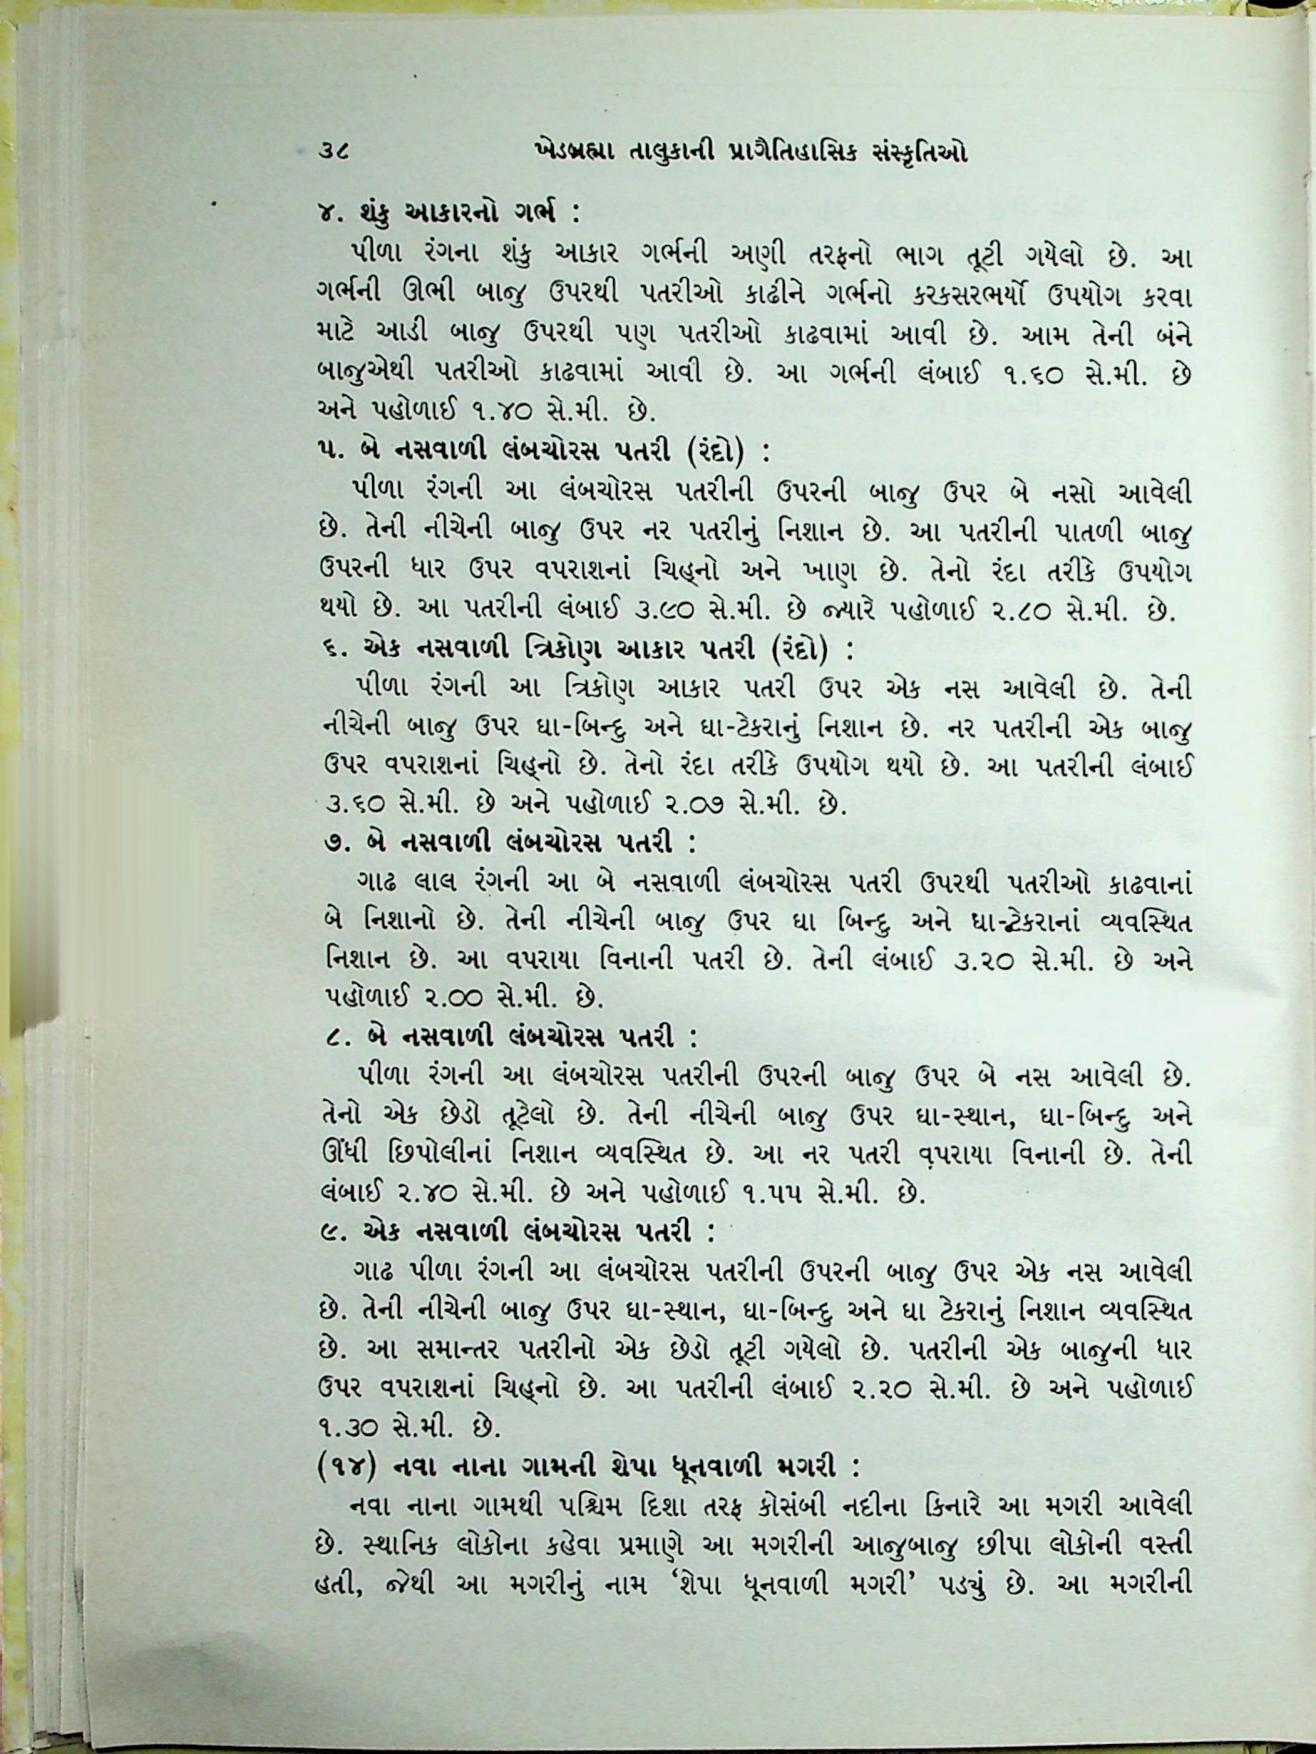 ૩૮ ખેડબ્રહ્મા તાલુકાની પ્રાગૈતિહાસિક સંસ્કૃતિઓ
૪. શંકુ આકારનો ગર્ભ :
પીળા રંગના શંકુ આકાર ગર્ભની અણી તરફનો ભાગ તૂટી ગયેલો છે. આ
ગર્ભની ઊભી બાજુ ઉપરથી પતરીઓ કાઢીને ગર્ભનો કરકસરભર્યો ઉપયોગ કરવા
માટે આડી બાજુ ઉપરથી પણ પતરીઓ કાઢવામાં આવી છે. આમ તેની બંને
બાજુએથી પતરીઓ કાઢવામાં આવી છે. આ ગર્ભની લંબાઈ ૧.૬૦ સે.મી. છે
અને પહોળાઈ ૧.૪૦ સે.મી. છે.
૫. બે નસવાળી લંબચોરસ પતરી (રંદો) :
પીળા રંગની આ લંબચોરસ પતરીની ઉપરની બાજુ ઉપર બે નસો આવેલી
છે. તેની નીચેની બાજુ ઉપર નર પતરીનું નિશાન છે. આ પતરીની પાતળી બાજુ
ઉપરની ધાર ઉપર વપરાશનાં ચિહ્નો અને ખાણ છે. તેનો રંદા તરીકે ઉપયોગ
થયો છે. આ પતરીની લંબાઈ ૩.૯૦ સે.મી. છે જ્યારે પહોળાઈ ૨.૮૦ સે.મી. છે.
૬. એક નસવાળી ત્રિકોણ આકાર પતરી (રંદો) :
પીળા રંગની આ ત્રિકોણ આકાર પતરી ઉપર એક નસ આવેલી છે. તેની
નીચેની બાજુ ઉપર ઘા-બિન્દુ અને ઘા-ટેકરાનું નિશાન છે. નર પતરીની એક બાજુ
ઉપર વપરાશનાં ચિહ્નો છે. તેનો રંદા તરીકે ઉપયોગ થયો છે. આ પતરીની લંબાઈ
૩.૬૦ સે.મી. છે અને પહોળાઈ ૨.૦૭ સે.મી. છે.
૭. બે નસવાળી લંબચોરસ પતરી :
ગાઢ લાલ રંગની આ બે નસવાળી લંબચોરસ પતરી ઉપરથી પતરીઓ કાઢવાનાં
બે નિશાનો છે. તેની નીચેની બાજુ ઉપર ઘા બિન્દુ અને ઘા-ટેકરાનાં વ્યવસ્થિત
નિશાન છે. આ વપરાયા વિનાની પતરી છે. તેની લંબાઈ ૩.૨૦ સે.મી. છે અને
પહોળાઈ ૨.૦૦ સે.મી. છે.
૮. બે નસવાળી લંબચોરસ પતરી :
પીળા રંગની આ લંબચોરસ પતરીની ઉપરની બાજુ ઉપર બે નસ આવેલી છે.
તેનો એક છેડો તૂટેલો છે. તેની નીચેની બાજુ ઉપર ઘા-સ્થાન, ઘા-બિન્દુ અને
ઊંધી છિપોલીનાં નિશાન વ્યવસ્થિત છે. આ નર પતરી વપરાયા વિનાની છે. તેની
લંબાઈ ૨.૪૦ સે.મી. છે અને પહોળાઈ ૧.૫૫ સે.મી. છે.
૯. એક નસવાળી લંબચોરસ પતરી :
ગાઢ પીળા રંગની આ લંબચોરસ પતરીની ઉપરની બાજુ ઉપર એક નસ આવેલી
છે. તેની નીચેની બાજુ ઉપર ઘા-સ્થાન, ઘા-બિન્દુ અને ઘા ટેકરાનું નિશાન વ્યવસ્થિત
છે. આ સમાન્તર પતરીનો એક છેડો તૂટી ગયેલો છે. પતરીની એક બાજુની ધાર
ઉપર વપરાશનાં ચિહ્નો છે. આ પતરીની લંબાઈ ૨.૨૦ સે.મી. છે અને પહોળાઈ
૧.૩૦ સે.મી. છે.
(૧૪) નવા નાના ગામની શેપા ધૂનવાળી મગરી :
નવા નાના ગામથી પશ્ચિમ દિશા તરફ કોસંબી નદીના કિનારે આ મગરી આવેલી
છે. સ્થાનિક લોકોના કહેવા પ્રમાણે આ મગરીની આજુબાજુ છીપા લોકોની વસ્તી
હતી, જેથી આ મગરીનું નામ ‘શેપા ધૂનવાળી મગરી’ પડ્યું છે. આ મગરીની